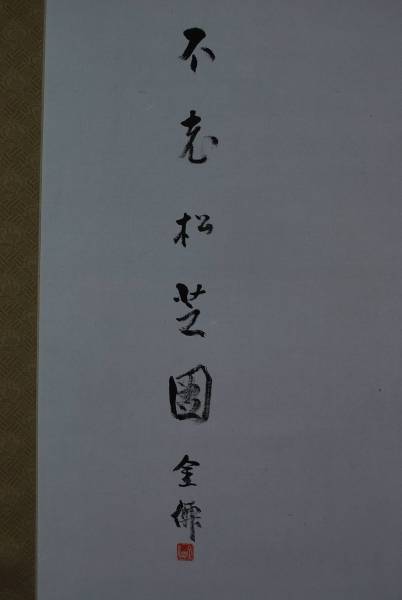 不老松芝図
金僊